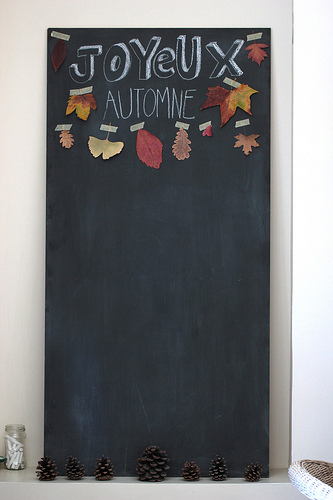 JOYeUX
AUTOMNE